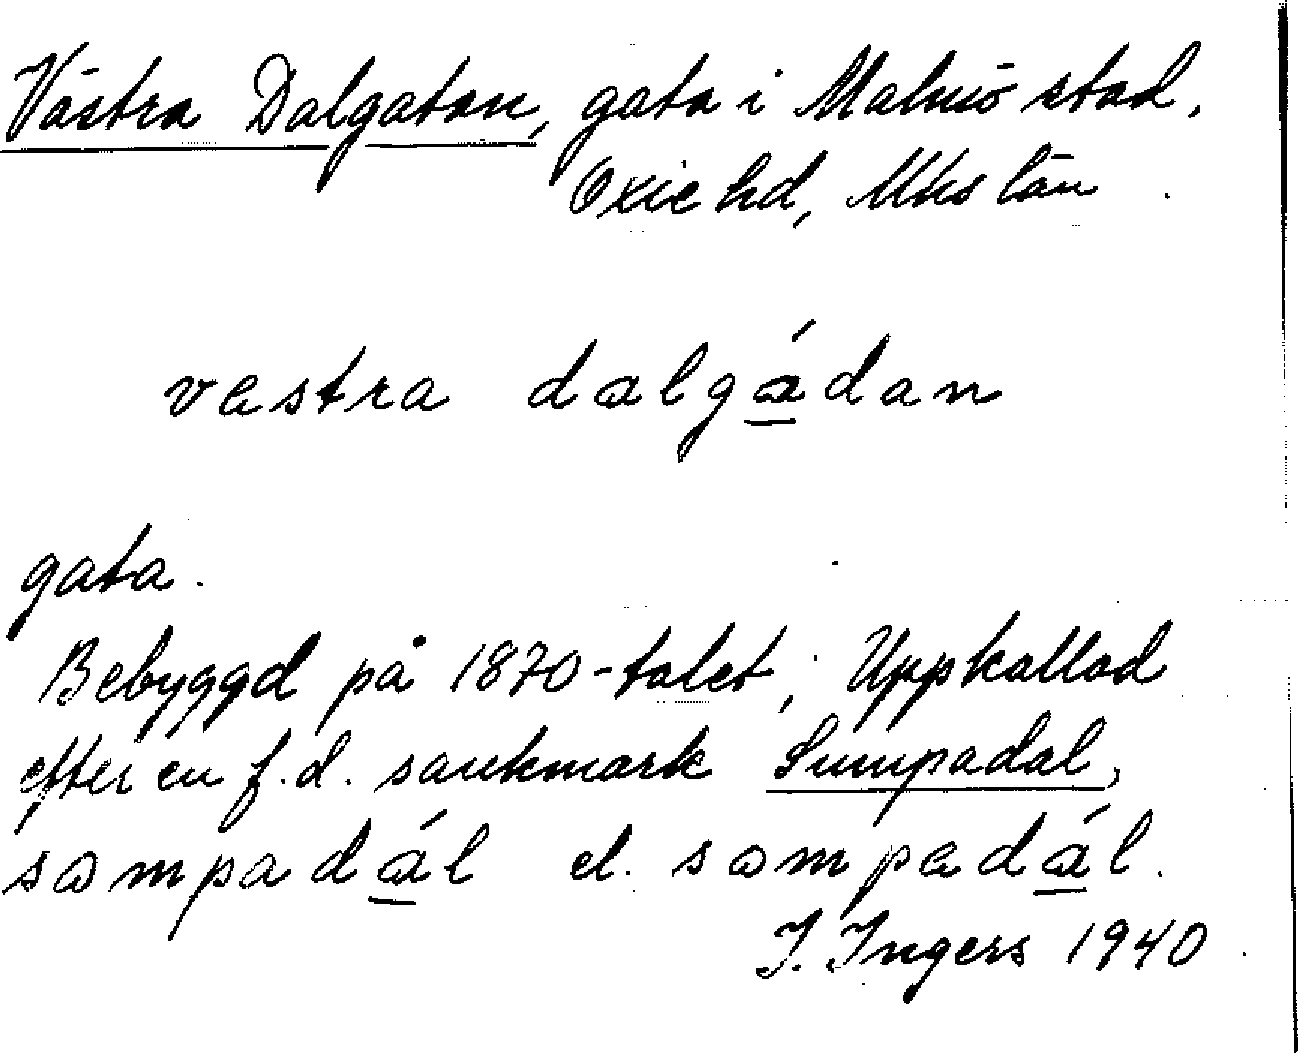 Västra Dalgatan, gata i Malmö stad,
Oxie hd, Mhs län
vastra dalgá̱dan
gata.
Bebyggd på 1870-talet; Uppkallad
efter en f.d. sankmark Sumpadal,
sɷmpadá̱l el. sɷmpadá̱l.
I. Ingers 1940